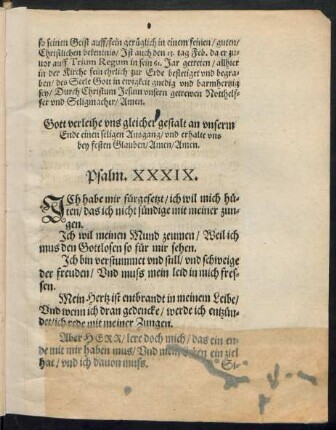 so seinen Geist auff/sein gerüglich in einem feinen/guten/
Christlichen bekentnis/Ist auch den 13. tag Feb. da er zu-
uor auff Trium Regum in sein 61. Jar getreten/allhier
in der Kirche fein ehrlich zur Erde bestetiget vnd begra-
ben/des Seele Gott in ewigkeit gnedig vnd barmhertzig
sey/Durch Christum Jesum vnsern getrewen Notthelf-
fer vnd Seligmacher/Amen.
Gott verleihe vns gleicher gestalt an vnserm
Ende einen seligen Ausgang/vnd erhalte vns
bey festen Glauben/Amen/Amen.
Psalm. XXXIX.
ICh habe mir fürgesetzt/ich wil mich hü-
ten/das ich nicht sündige mit meiner zun-
gen.
Ich wil meinen Mund zeumen/Weil ich
mus den Gottlosen so für mir sehen.
Ich bin verstummet vnd still/vnd schweige
der freuden/Vnd mufs mein leid in mich fres-
sen.
Mein Hertz ist entbrandt in meinem Leibe/
Vnd wenn ich dran gedencke/werde ich entzün-
det/ich rede mit meiner Zungen.
Aber HERR/lere doch mich/das ein en-
de mit mir haben mus/Vnd mein leben ein ziel
hat/vnd ich dauon muss.
Si-